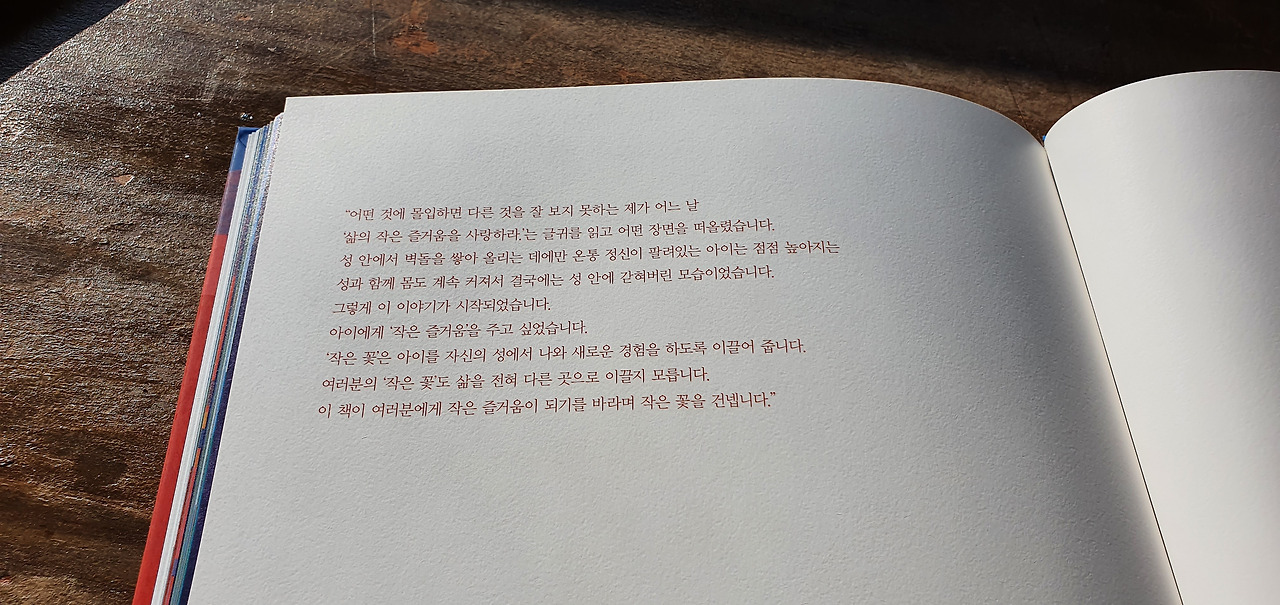 “어떤 것에 몰입하면 다른 것을 잘 보지 못하는 제가 어느 날
‘삶의 작은 즐거움을 사랑하라.’는 글귀를 읽고 어떤 장면을 떠올렸습니다.
성 안에서 벽돌을 쌓아 올리는 데에만 온통 정신이 팔려있는 아이는 점점 높아지는
성과 함께 몸도 계속 커져서 결국에는 성 안에 갇혀버린 모습이었습니다.
그렇게 이 이야기가 시작되었습니다.
아이에게 ‘작은 즐거움’을 주고 싶었습니다.
‘작은 꽃’은 아이를 자신의 성에서 나와 새로운 경험을 하도록 이끌어 줍니다.
여러분의 ‘작은 꽃’도 삶을 전혀 다른 곳으로 이끌지 모릅니다.
이 책이 여러분에게 작은 즐거움이 되기를 바라며 작은 꽃을 건넵니다.”